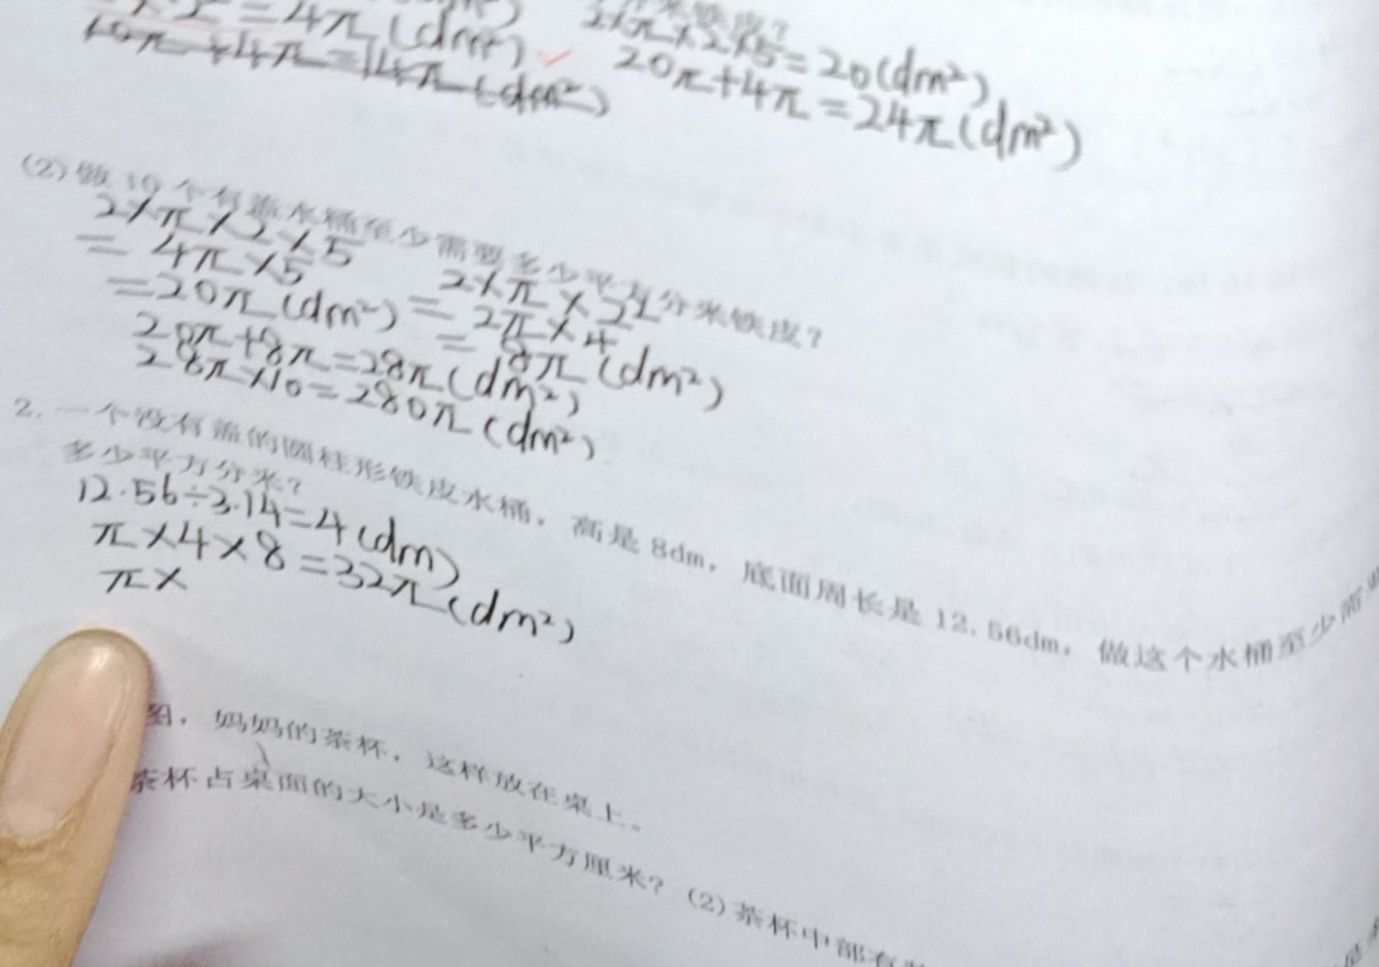 =4π(dm²)
10π+4π=14π(dm²)
2×π×2×5=20(dm²)
20π+4π=24π(dm²)
(2)做10个有盖水桶至少需要多少平方分米铁皮?
2×π×2×5
=4π×5
=20π(dm²)
2×π×2²
=2π×4
=8π(dm²)
20π+8π=28π(dm²)
28π×10=280π(dm²)
2.一个没有盖的圆柱形铁皮水桶,高是8dm,底面周长是12.56dm,做这个水桶至少需要
多少平方分米?
12.56÷3.14=4(dm)
π×4×8=32π(dm²)
π×
图,妈妈的茶杯,这样放在桌上。
茶杯占桌面的大小是多少平方厘米?(2)茶杯中部有